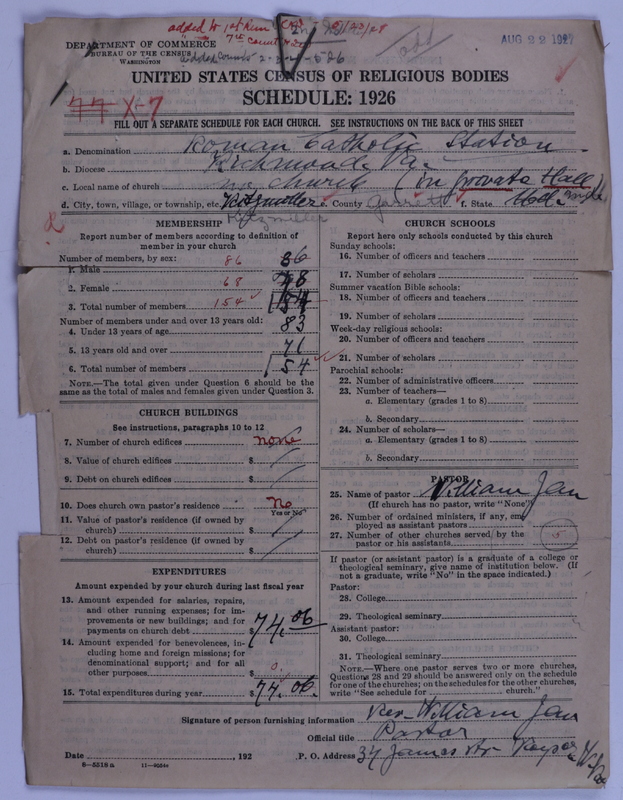 added to 1st Run
7th Count
DEPARTMENT OF COMMERCE
BUREAU OF THE CENSUS
WASHINGTON
AUG 22 1927
UNITED STATES CENSUS OF RELIGIOUS BODIES
SCHEDULE: 1926
77 X-7
FILL OUT A SEPARATE SCHEDULE FOR EACH CHURCH. SEE INSTRUCTIONS ON THE BACK OF THIS SHEET
a. Denomination Roman Catholic Station
b. Diocese Richmond Va.
c. Local name of church no church (in private Hall
d. City, town, village, or township, etc. Kitzmiller e. County Garrett f. State Md.
Kitzmiller
MEMBERSHIP
Report number of members according to definition of
member in your church
Number of members, by sex:
1. Male 86 86
2. Female 68
3. Total number of members 154
Number of members under and over 13 years old:
4. Under 13 years of age 83
5. 13 years old and over 71
6. Total number of members 154
NOTE.—The total given under Question 6 should be
same as the total of males and females given under Question 3.
CHURCH BUILDINGS
See instructions, paragraphs 10 to 12
7. Number of church edifices none
8. Value of church edifices $
9. Debt on church edifices $
10. Does church own pastor's residence No
Yes or No
11. Value of pastor's residence (if owned by
church) $
12. Debt on pastor's residence (if owned by
church) $
EXPENDITURES
Amount expended by your church during last fiscal year
13. Amount expended for salaries, repairs,
and other running expenses; for im-
provements or new buildings; and for
payments on church debt $ 74.06
14. Amount expended for benevolences, in-
cluding home and foreign missions; for
denominational support; and for all
other purposes $ 0.
15. Total expenditures during year $ 74.06.
CHURCH SCHOOLS
Report here only schools conducted by this church
Sunday schools:
16. Number of officers and teachers
17. Number of scholars
Summer vacation Bible schools:
18. Number of officers and teachers
19. Number of scholars
Week-day religious schools:
20. Number of officers and teachers
21. Number of scholars
Parochial schools:
22. Number of administrative officers
23. Number of teachers—
a. Elementary (grades 1 to 8)
b. Secondary
24. Number of scholars—
a. Elementary (grades 1 to 8)
b. Secondary
PASTOR
25. Name of pastor William Jan
(If church has no pastor, write "None")
26. Number of ordained ministers, if any, em-
ployed as assistant pastors
27. Number of other churches served by the
pastor or his assistants 5
If pastor (or assistant pastor) is a graduate of a college or
theological seminary, give name of institution below. (If
not a graduate, write "No" in the space indicated.)
Pastor:
28. College
29. Theological seminary
Assistant pastor:
30. College
31. Theological seminary
NOTE.—Where one pastor serves two or more churches,
Questions 28 and 29 should be answered only on the schedule
for one of the churches; on the schedules for the other churches,
write "See schedule for church."
Signature of person furnishing information Rev. William Jan
Official title Pastor
Date , 192 P. O. Address 34 James Str. Keyser W. Va.
8—5518a 11—9554